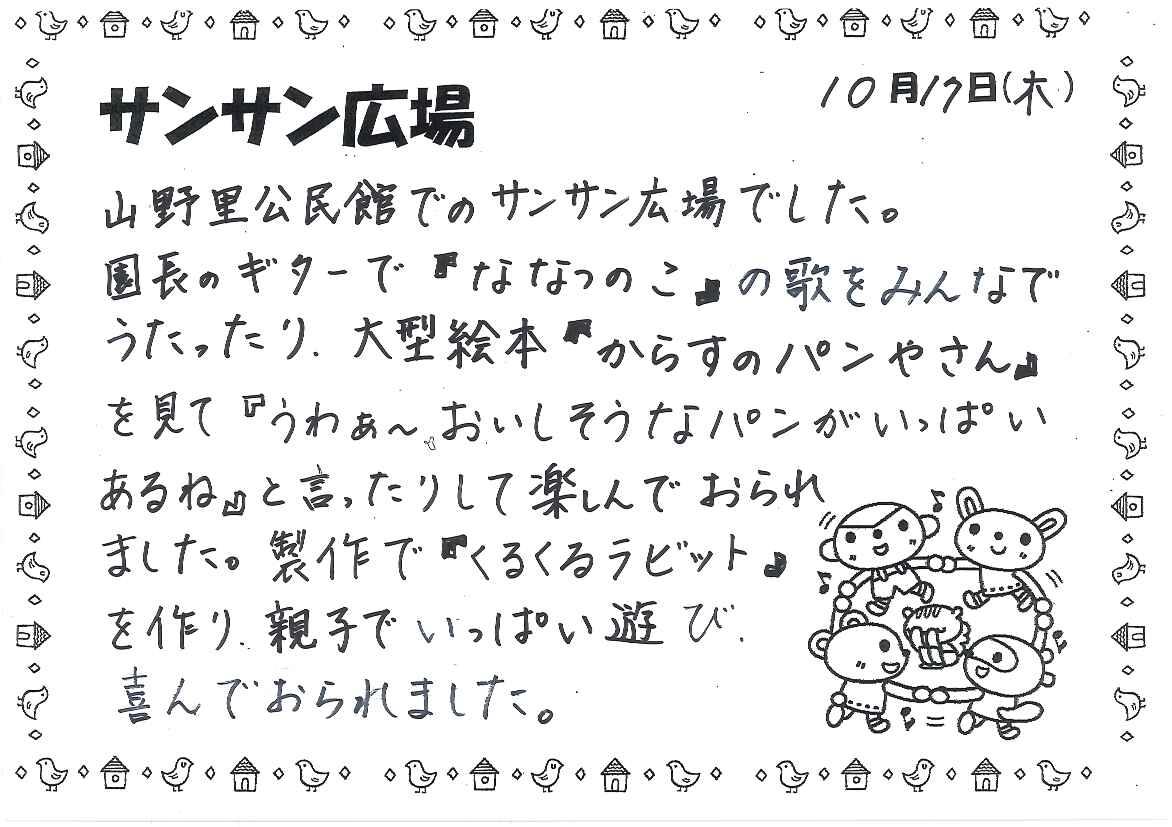 サンサン広場
10月17日(木)
山野里公民館でのサンサン広場でした。
園長のギターで『ななつのこ』の歌をみんなで
うたったり、大型絵本『からすのパンやさん』
を見て『うわぁ～おいしそうなパンがいっぱい
あるね』と言ったりして楽しんでおられ
ました。製作で『くるくるラビット』
を作り、親子でいっぱい遊び、
喜んでおられました。